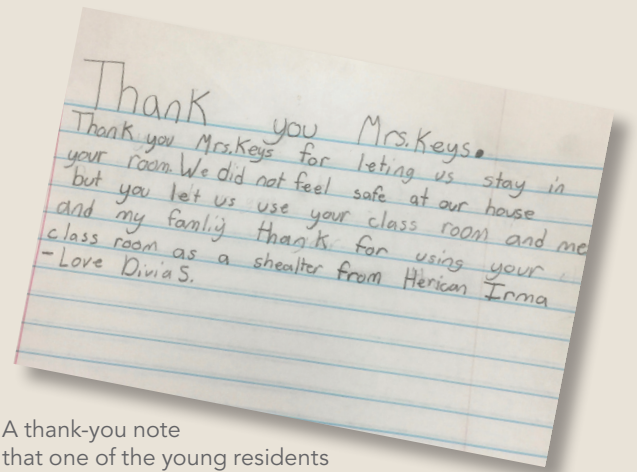 Thank you Mrs.Keys.
Thank you Mrs.Keys for leting us stay in
your room. We did not feel safe at our house
but you let us use your class room and me
and my famliy thank for using your
class room as a shealter from Herican Irma
- Love Divia S.
A thank-you note
that one of the young residents